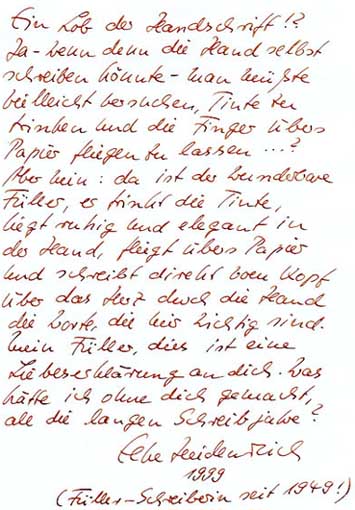 Ein Lob der Handschrift!?
Ja – wenn denn die Hand selbst
schreiben könnte – man müßte
vielleicht versuchen, Tinte zu
trinken und die Finger übers
Papier fliegen zu lassen ...?
Aber nein: da ist der wunderbare
Füller, er trinkt die Tinte,
liegt ruhig und elegant in
der Hand, fliegt übers Papier
und schreibt direkt vom Kopf
über das Herz durch die Hand
die Worte, die mir wichtig sind.
Mein Füller, dies ist eine
Liebeserklärung an dich. Was
hätte ich ohne dich gemacht,
all die langen Schreibjahre?
Elke Heidenreich
1999
(Füller-Schreiberin seit 1949!)